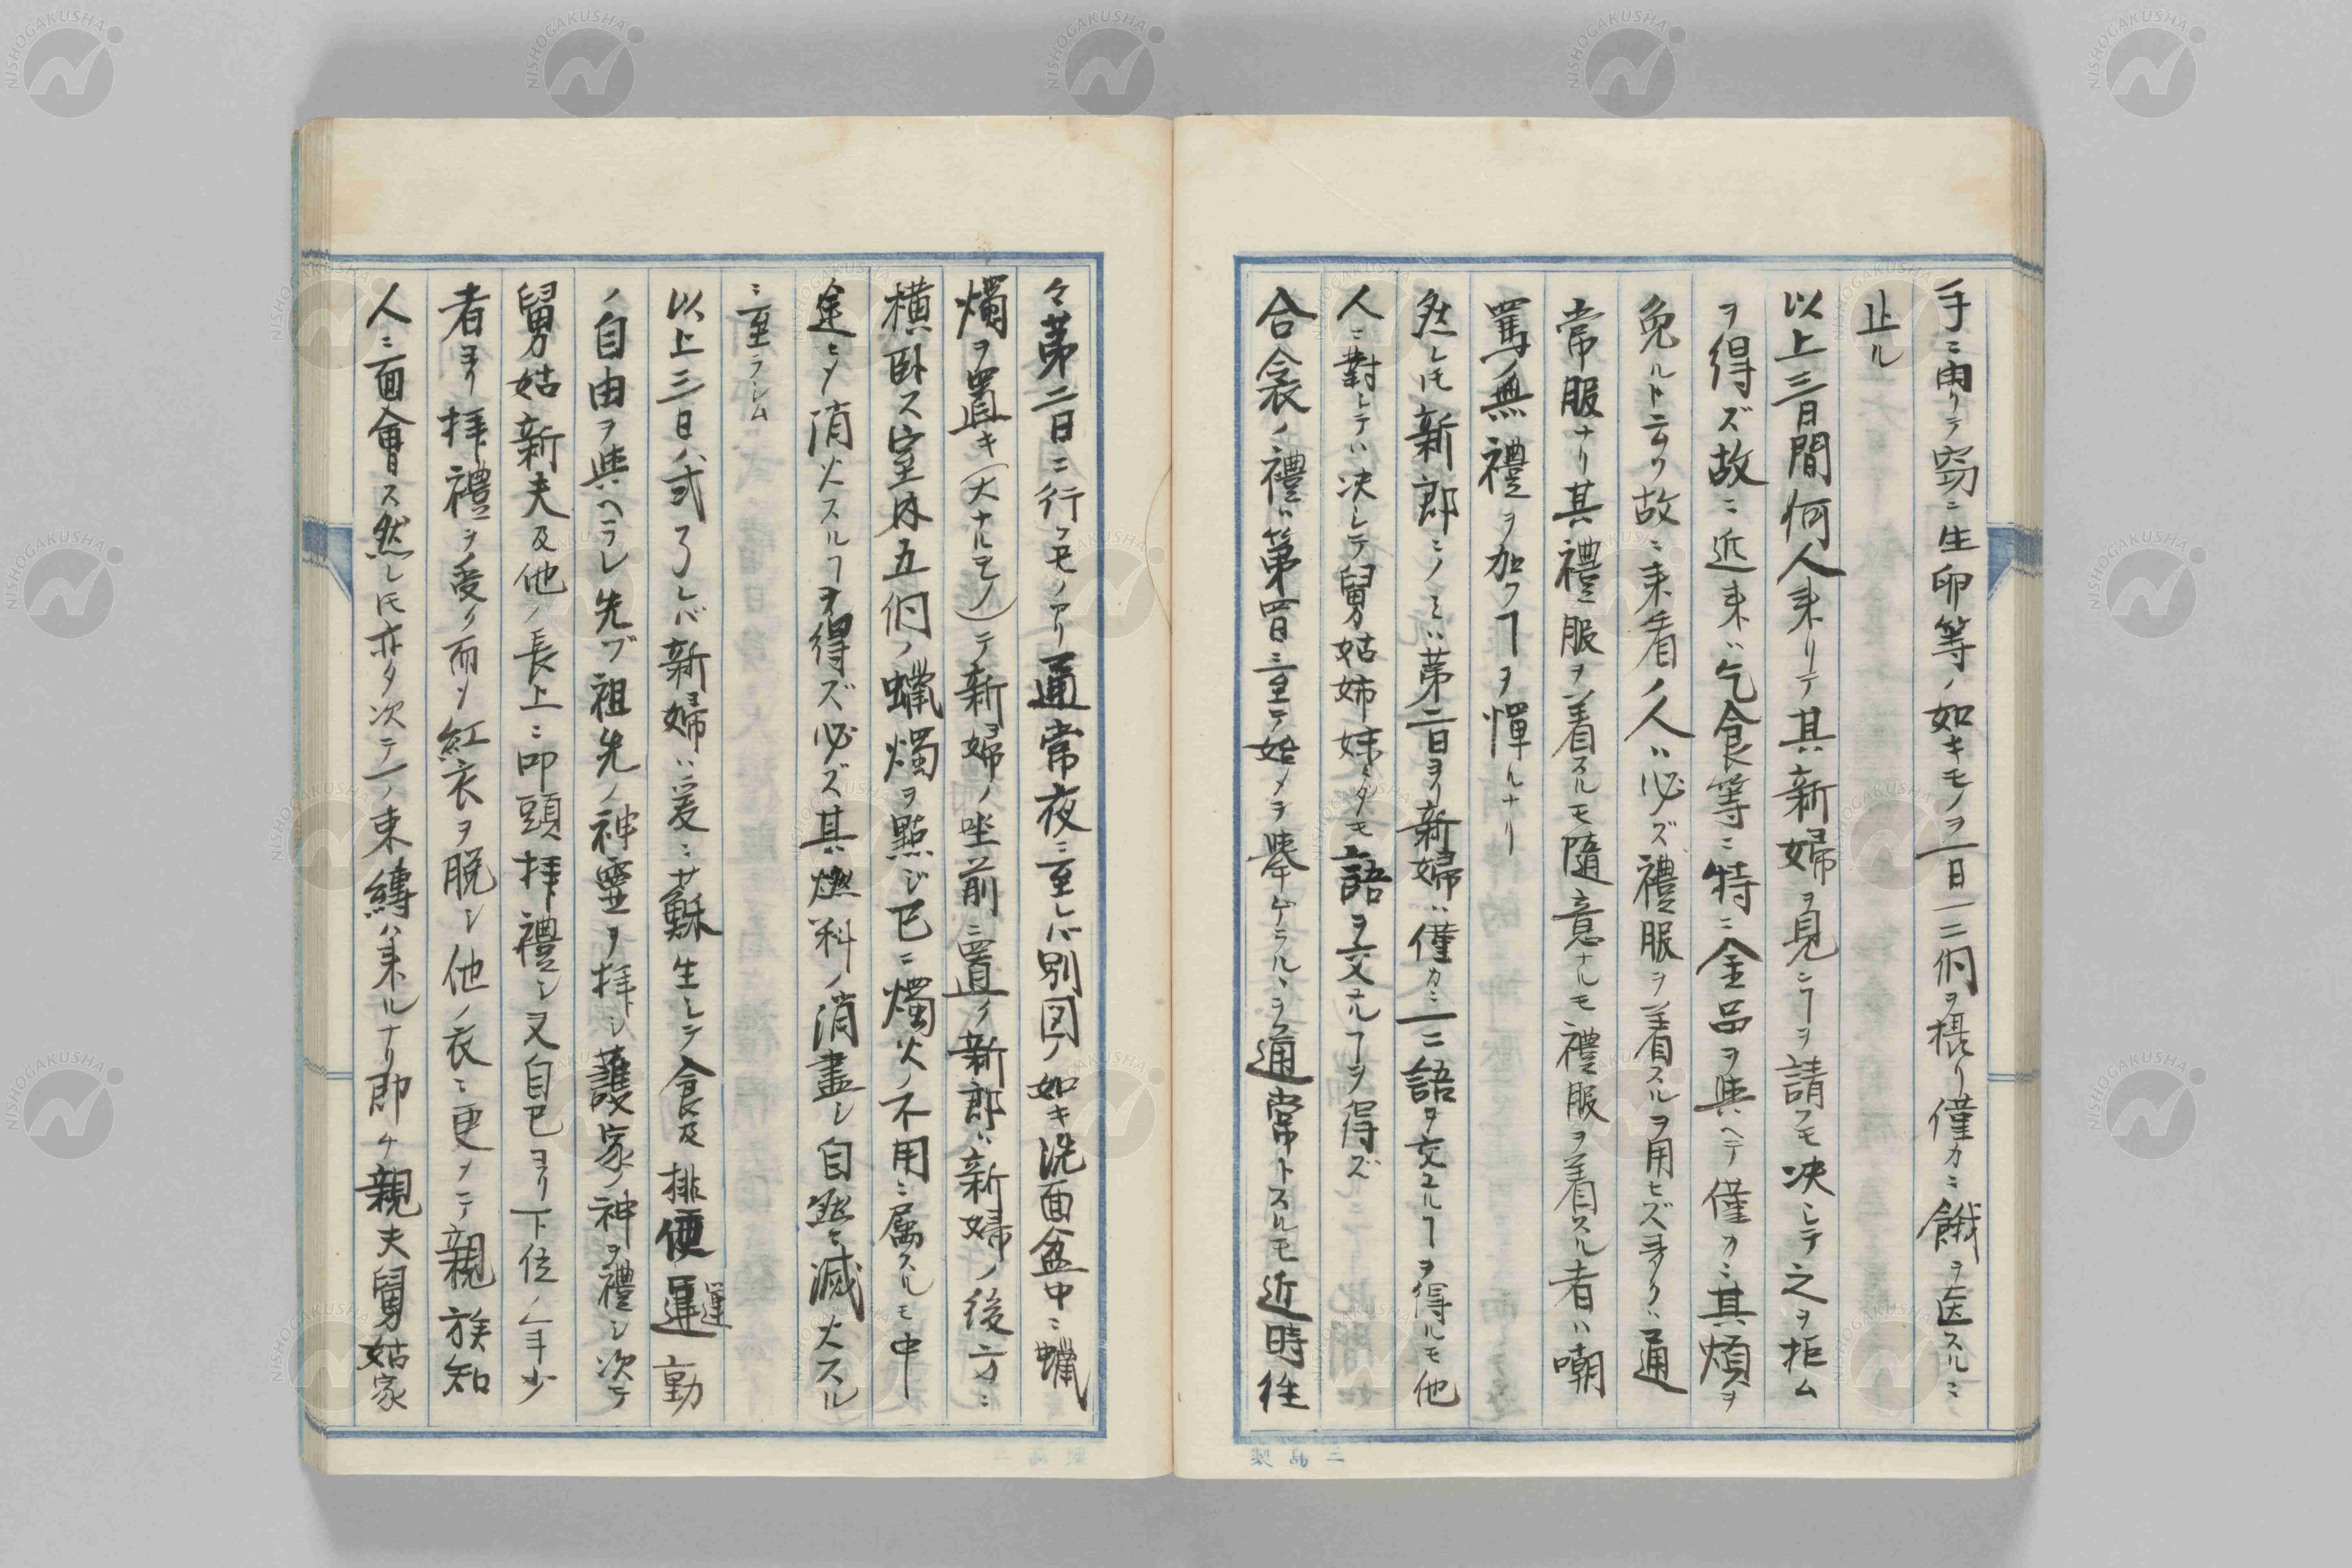 手ニ由リテ窃ニ生卵等ノ如キモノヲ一日一二個ヲ摂リ僅カニ餓ヲ医スルニ
止ル
以上三日間何人来リテ其新婦ヲ見ンヿヲ請フモ决シテ之ヲ拒ム
ヲ得ズ故ニ近来ハ乞食等ニ特ニ金品ヲ與ヘテ僅カニ其煩ヲ
免ルト云フ故ニ来看ノ人ハ必ズ禮服ヲ着スルヲ用ヒズ多クハ通
常服ナリ其禮服ヲ着スルモ隨意ナルモ禮服ヲ着スル者ハ嘲
罵ノ無禮ヲ加フヿヲ憚ルナリ
然レ𪜈新郎ニノミハ第二日ヨリ新婦ハ僅カニ一二語ヲ交ユルヿヲ得ルモ他
人ニ對シテハ决シテ舅姑姉妹ト雖モ一語ヲ交ユルヿヲ得ズ
合衾ノ禮ハ第四日ニ至テ始メテ擧ケラルヽヲ通常トスルモ近時往
々第二日ニ行フモノアリ通常夜ニ至レバ別図ノ如キ洗面盆中ニ蠟
燭ヲ置キ(大ナルモノ)テ新婦ノ坐前ニ置ク新郎ハ新婦ノ後方ニ
横臥ス室内五個ノ蠟燭ヲ點ジ已ニ燭火ノ不用ニ属スルモ中
途ニメ消火スルヿヲ得ズ必ズ其燃料ノ消盡シ自然ニ滅火スル
ニ至ラシム
以上三日ノ式了レバ新婦ハ爰ニ甦生シテ食及排便運運動
ノ自由ヲ與ヘラレ先ヅ祖先ノ神霊ヲ拝シ護家ノ神ヲ禮シ次テ
舅姑新夫及他ノ長上ニ叩頭拝禮シ又自己ヨリ下位ノ年少
者ヨリ拝禮ヲ受ク而シ紅衣ヲ脱シ他ノ衣ニ更ヲテ親族知
人ニ面會ス然レ𪜈亦タ次テ一ノ束縛ハ来ルナリ即チ親夫舅姑家
三島製